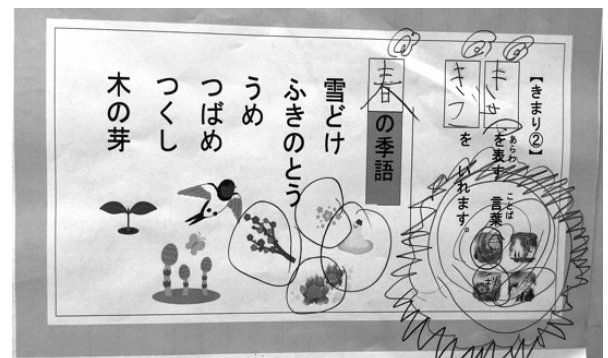 【きまり②】
きせつを表す言葉
きごをいれます。
春の季語
雪どけ
ふきのとう
うめ
つばめ
つくし
木の芽